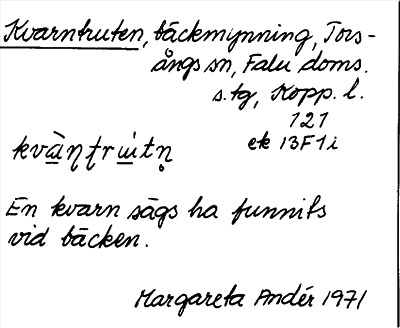 Kvarntruten, bäckmynning, Tors-
ångs sn, Falu doms.
s. tg, Kopp. l.
121
ek 13F1i
kvàṇṭrùtṇ̥
En kvarn sägs ha funnits
vid bäcken.
Margareta Andér 1971